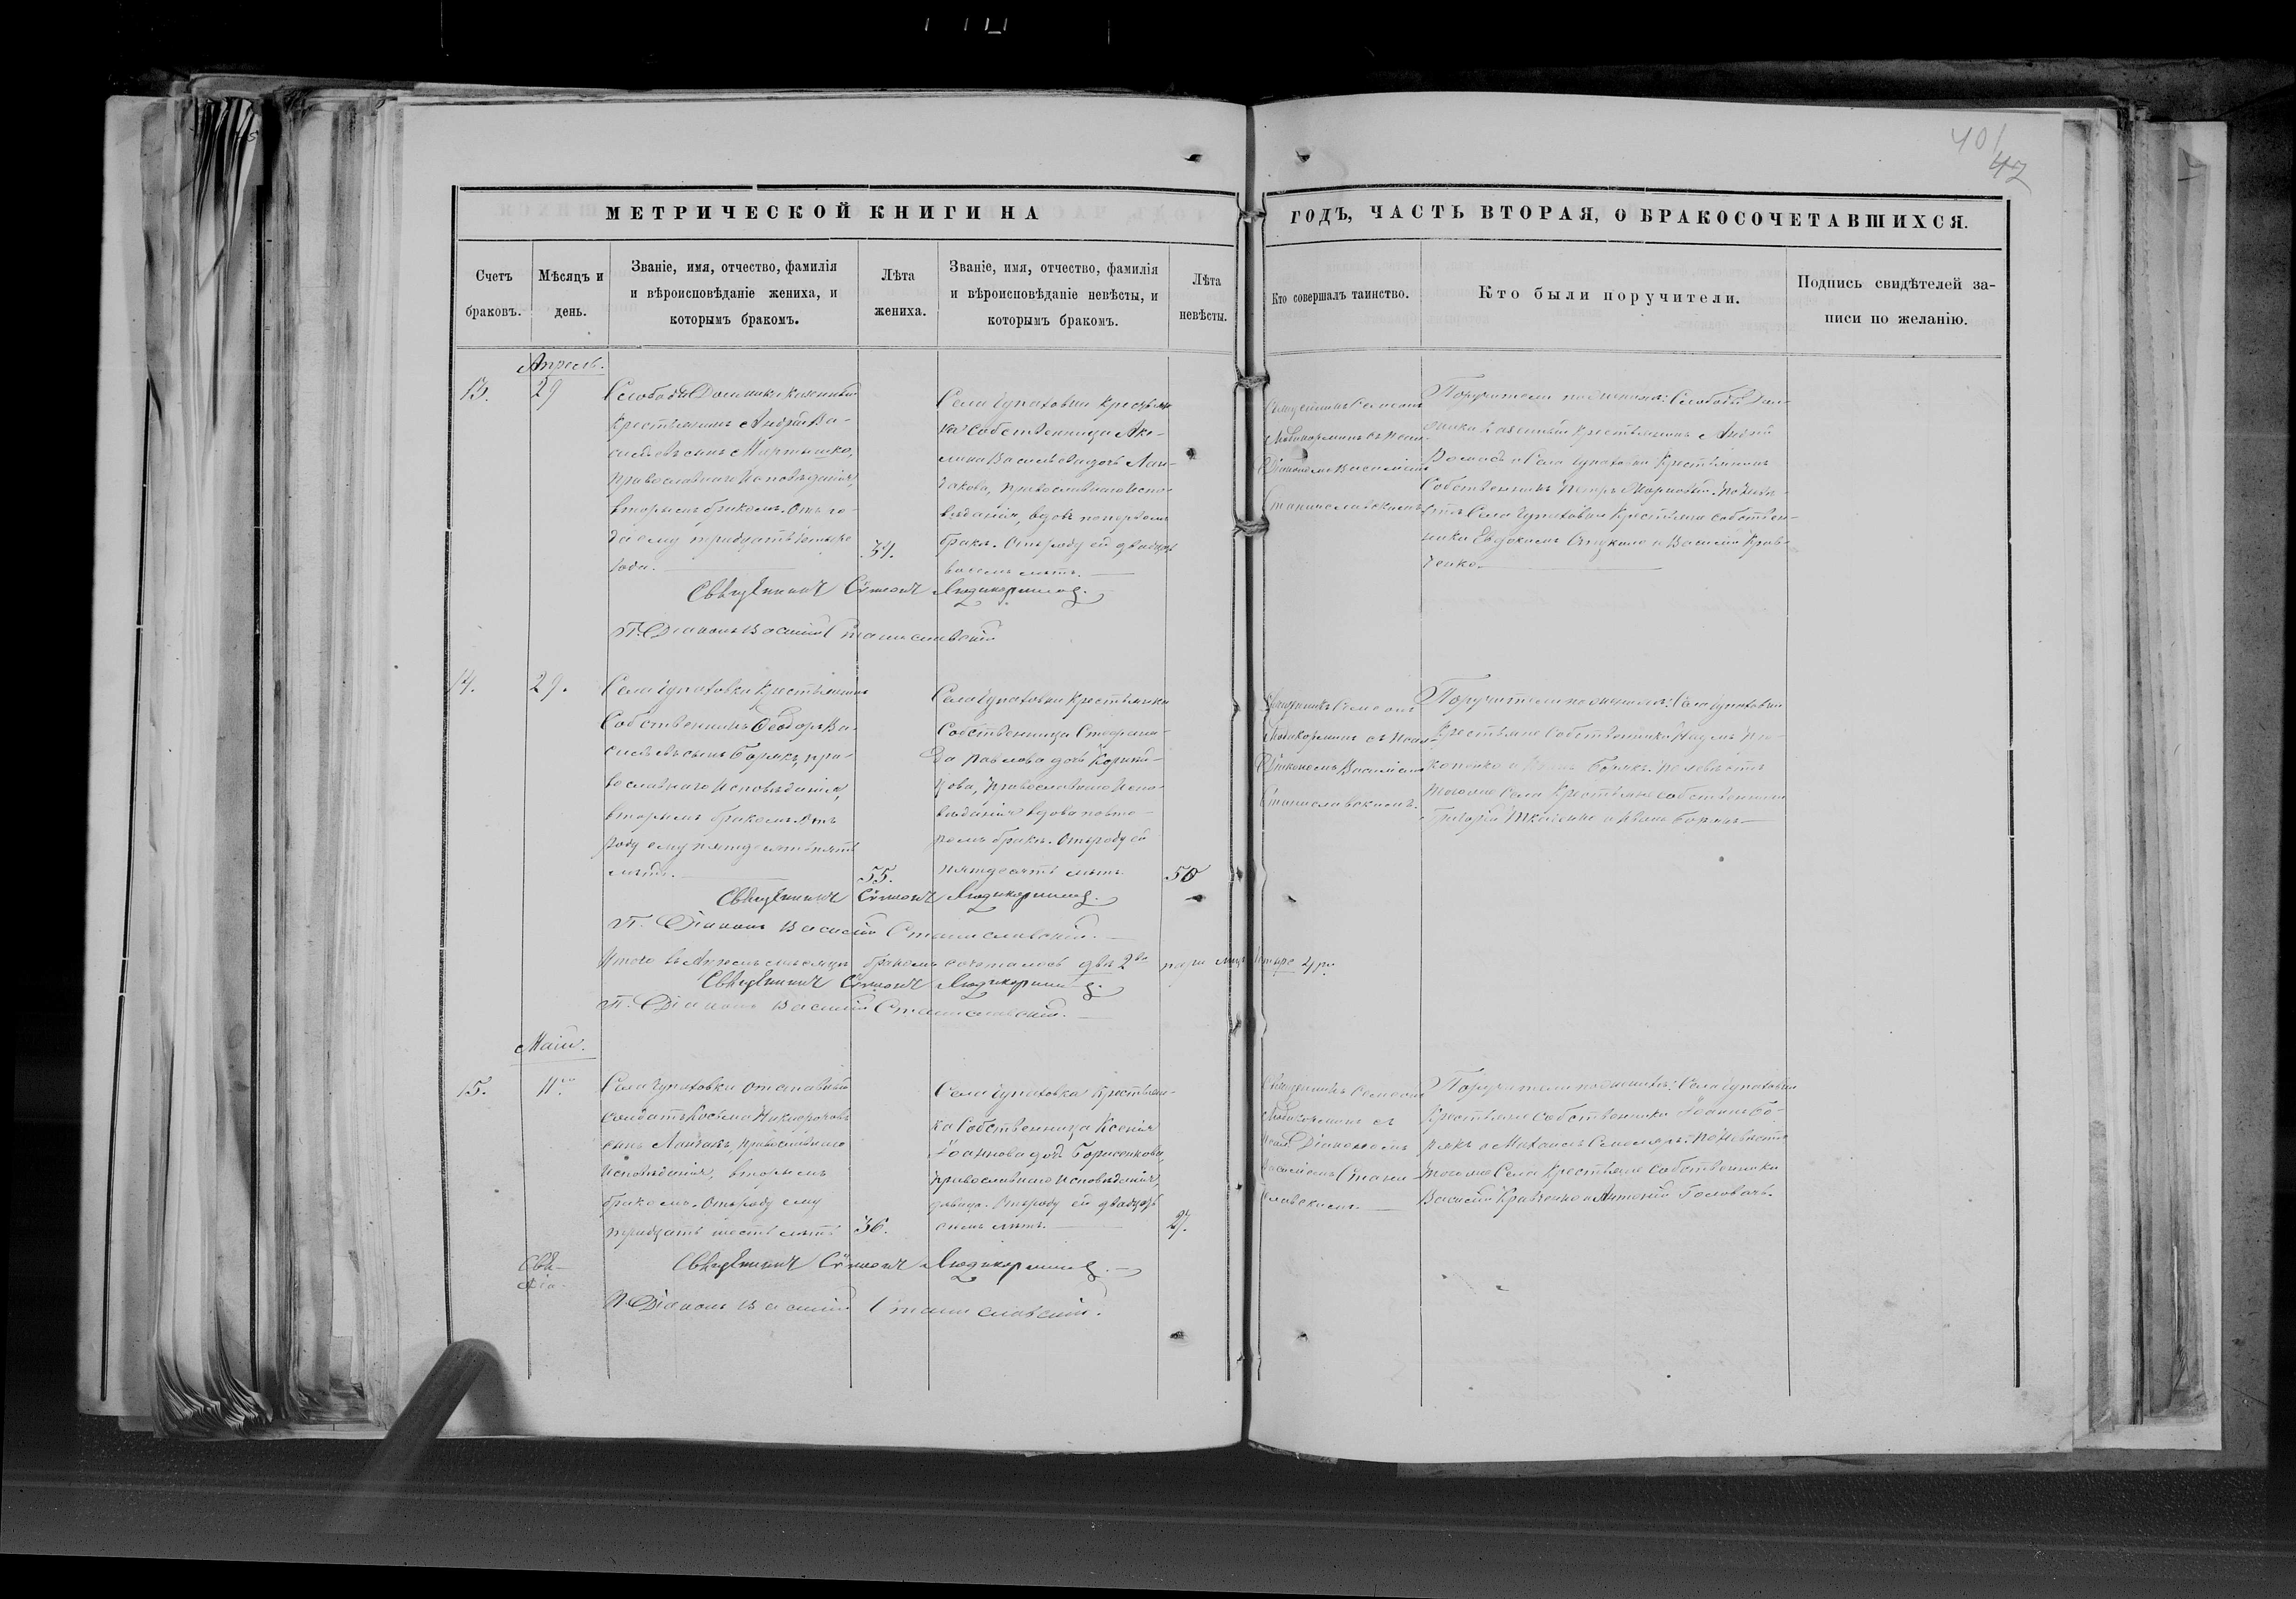 401
47
МЕТРИЧЕСКОЙ КНИГИ НА
ГОДЪ, ЧАСТЬ ВТОРАЯ, О БРАКОСОЧЕТАВШИХСЯ.
Счетъ браковъ.
Мѣсяцъ и день.
Званіе, имя, отчество, фамилія
и вѣроисповѣданіе жениха, и
которымъ бракомъ.
Лѣта жениха.
Званіе, имя, отчество, фамилія
и вѣроисповѣданіе невѣсты, и
которымъ бракомъ.
Лѣта невѣсты.
Кто совершалъ таинство.
Кто были поручители.
Подпись свидѣтелей за-
писи по желанію.
Апрель.
13.
29
Слободы
крестьянинъ Андрей Ва-
сильевъ сынъ Мартышко,
православнаго исповѣданія,
вторымъ бракомъ. Отъ ро-
да ему тридцать четыре
года.
34.
Села Чупаховки крестьян-
ка собственница Аку-
лина Васильева дочь Лан-
чакова, православнаго испо-
вѣданія, вдова по первомъ
бракѣ. Отъ роду ей двадцать
восемь лѣтъ.
Священникъ Симеонъ
Діакономъ Василіемъ
Станиславскимъ
Поручители по женихѣ: Слободы
крестьянинъ Андрей
и Села Чупаховки крестьянинъ
собственникъ Петръ
Села Чупаховки крестьяне собствен-
ники Евдокимъ и Василій Крав-
ченко.
Священникъ Симеонъ
П. Діаконъ Василій Станиславскій
14.
29.
Села Чупаховки крестьянинъ
собственникъ Ѳеодоръ Ва-
сильевъ сынъ Борякъ, пра-
вославнаго исповѣданія,
вторымъ бракомъ. Отъ
роду ему пятьдесятъ пять
лѣтъ.
55.
Села Чупаховки крестьянка
собственница Стефани-
да Павлова дочь
православнаго испо-
вѣданія вдова по вто-
ромъ бракѣ. Отъ роду ей
пятьдесятъ лѣтъ.
50
Священникъ Симеонъ
Діакономъ Василіемъ
Станиславскимъ.
Поручители по женихѣ: Села Чупаховки
крестьяне собственники Наумъ Про-
копенко и Борякъ. По невѣстѣ
тогоже Села крестьяне собственники
Григорій Ткаченко и Иванъ Борякъ
Священникъ Симеонъ
П. Діаконъ Василій Станиславскій.
Итого въ Апрелѣ мѣсяцѣ бракомъ сочеталось двѣ 2 пары лицъ четыре 4
Священникъ Симеонъ
П. Діаконъ Василій Станиславскій.
Маій.
15.
11
Села Чупаховки отставный
солдатъ Косьма Никифоровъ
сынъ Ланчакъ, православнаго
исповѣданія, вторымъ
бракомъ. Отъ роду ему
тридцать шесть лѣтъ
36.
Села Чупаховки крестьян-
ка собственница Ксенія
Іоаннова дочь Борисенкова,
православнаго исповѣданія,
дѣвица. Отъ роду ей двадцать
семь лѣтъ.
27.
Священникъ Симеонъ
съ
Діакономъ
Василіемъ Стани-
славскимъ.
Поручители по женихѣ: Села Чупаховки
крестьяне собственники Іоаннъ Бо-
рякъ и Михаилъ Столяръ. По невѣстѣ
тогоже Села крестьяне собственники
Василій Кравченко и Антоній Головачъ.
Свя-
Діа-
Священникъ Симеонъ
П. Діаконъ Василій Станиславскій.